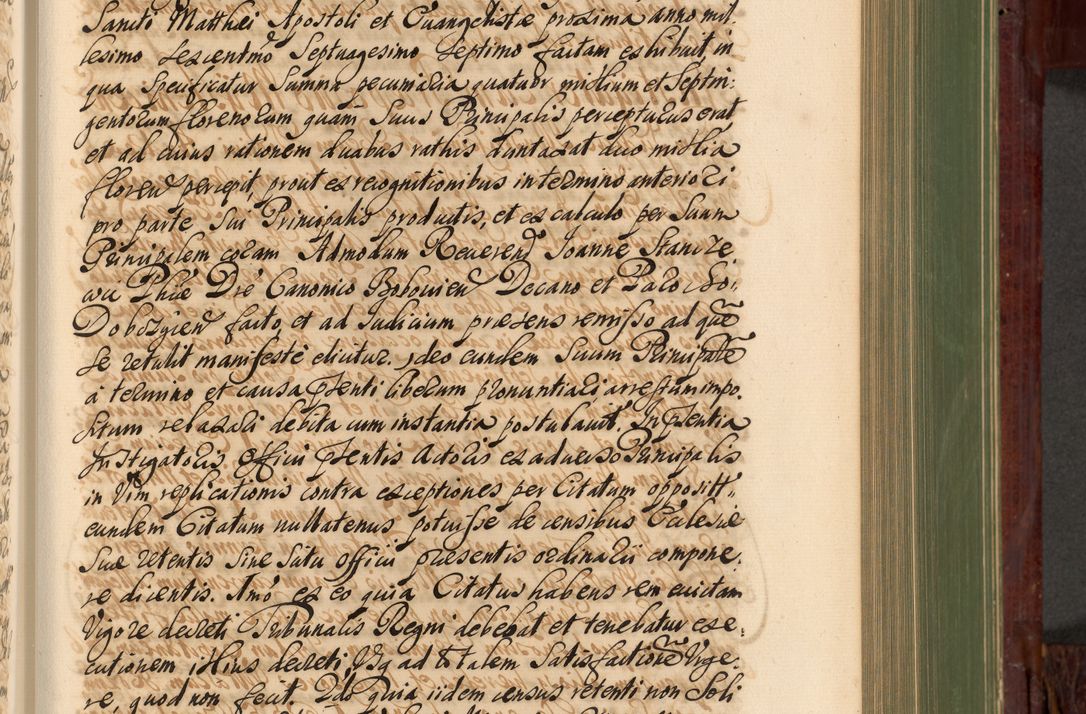 Sancti Matthei Apostoli et Euangelistæ proxima anno mil,
lesimo sexcentmo Septuagesimo Septimo factam exhibuit, in
qua specificatur Summa pecuniaria quatuor millium et Septin:
gentorum florenorum quam Suus Principalis percepturus erat
et ad cuius rationem duabus rathis duntaxat duo millia
floren percepit, prout ex recognitionibus in termino anteriori
pro parte Sui Principalis productis, et ex calculo per Suum
Principalem coram Admodum Reueren Joanne Stancze
wic Phiæ Dre Canonico Bobouien Decano et Parocho
Dobczycien facto, et ad Judicium præsens remisso ad que
se retulit manifestè elicitur. ideo eundem Suum Principale
à termino et causa pnti liberum pronuntiari, arrestum impo,
situm relaxari debita cum instantia postulauit. In pntia
Instigatoris officii pntis Actoris ex aduerso Principalis
in Vim replicationis contra exceptiones per Citatum oppositt,
eundem Citatum nullatenus potuisse de censibus Ecclesiæ
Suæ retentis Sine Scitu officii præsentis ordinarii compone,
re dicentis. Imo ex eo quia Citatus habens rem euictam
Vigore decreti Tribunalis Regni debebat et tenebatur exe,
cutionem illius decreti, Vsq ad totalem Satisfactione Vrge,
re, quod non fecit. 2do quia iidem census retenti non Soli